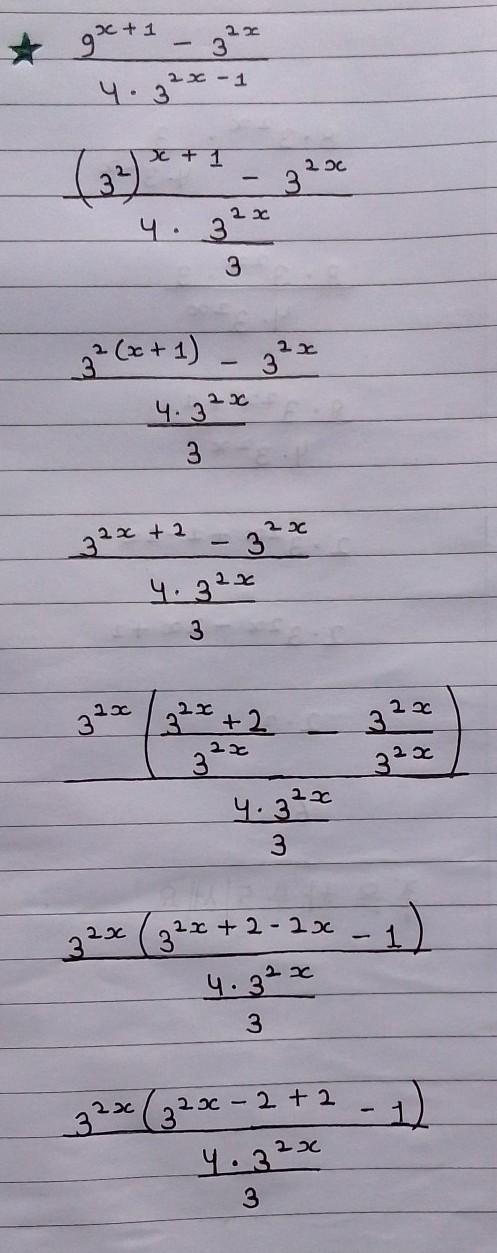 ★ (9^(x + 1) - 3^(2x)) / (4 · 3^(2x - 1))
((3^2)^(x + 1) - 3^(2x)) / (4 · 3^(2x)/3)
(3^(2(x + 1)) - 3^(2x)) / ((4 · 3^(2x))/3)
(3^(2x + 2) - 3^(2x)) / ((4 · 3^(2x))/3)
(3^(2x) ((3^(2x) + 2)/3^(2x) - 3^(2x)/3^(2x))) / ((4 · 3^(2x))/3)
(3^(2x) (3^(2x + 2 - 2x) - 1)) / ((4 · 3^(2x))/3)
(3^(2x) (3^(2x - 2 + 2) - 1)) / ((4 · 3^(2x))/3)